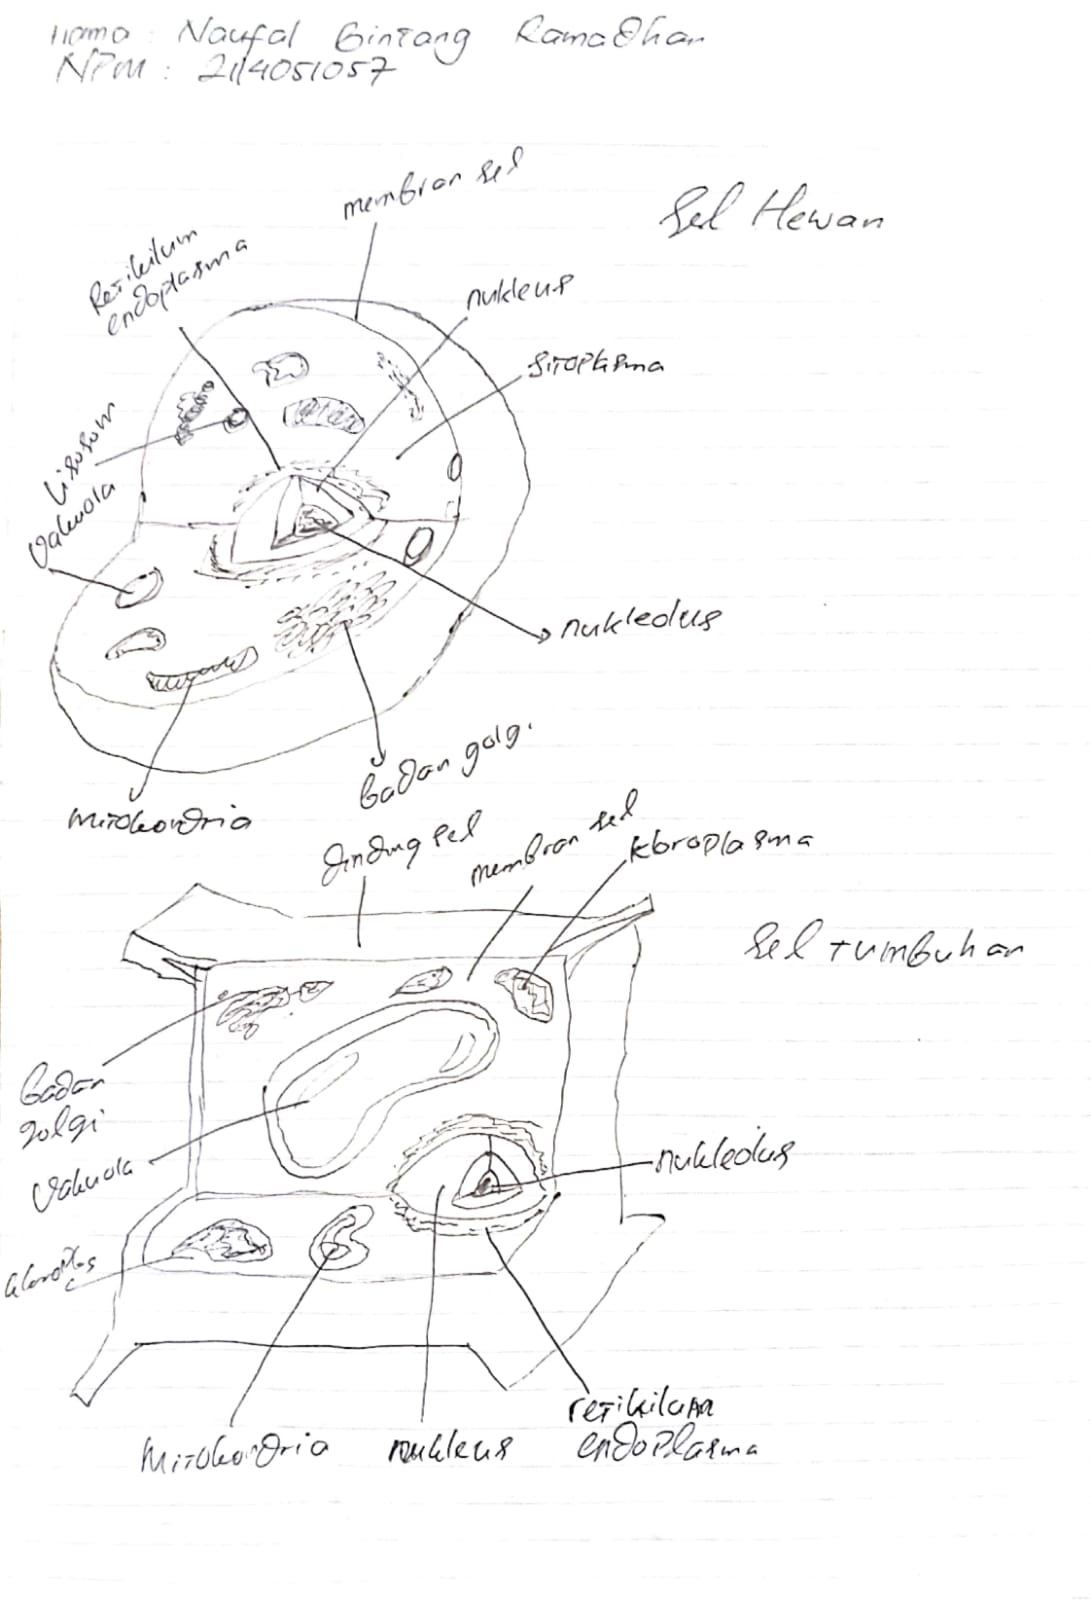 nama : Naufal Bintang Ramadhan
NPM : 2114051057
membran sel
Sel Hewan
Retikilum
endoplasma
nukleus
sitoplasma
Lisosom
Vakuola
nukleolus
badan golgi
mitokondria
dinding sel
membran sel
kloroplasma
Sel tumbuhan
badan
golgi
Vakuola
nukleolus
kloroplas
Mitokondria
nukleus
retikilum
endoplasma